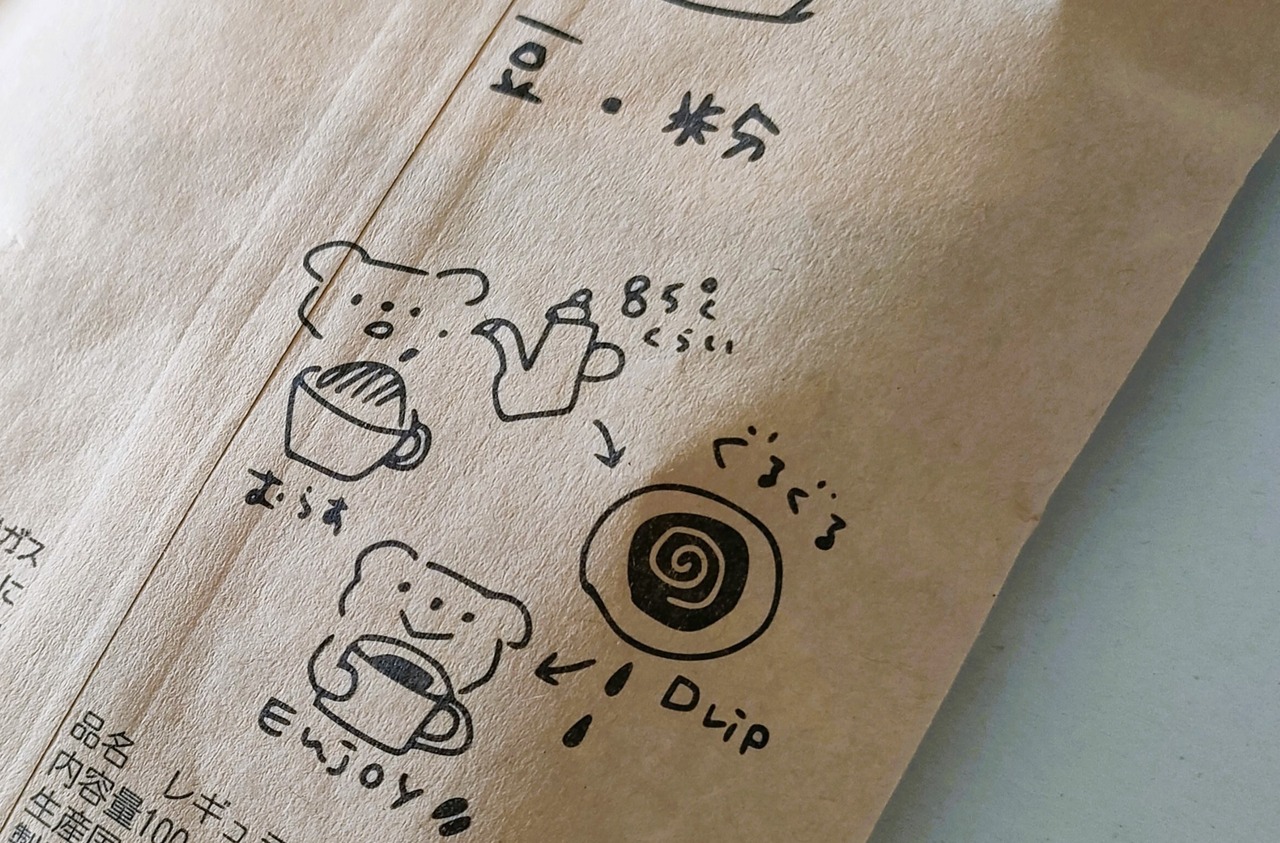 豆・粉
85℃
くらい
むらあ
ぐるぐる
Drip
Enjoy
ガス
に
品名 レギュラ
内容量100
生産国